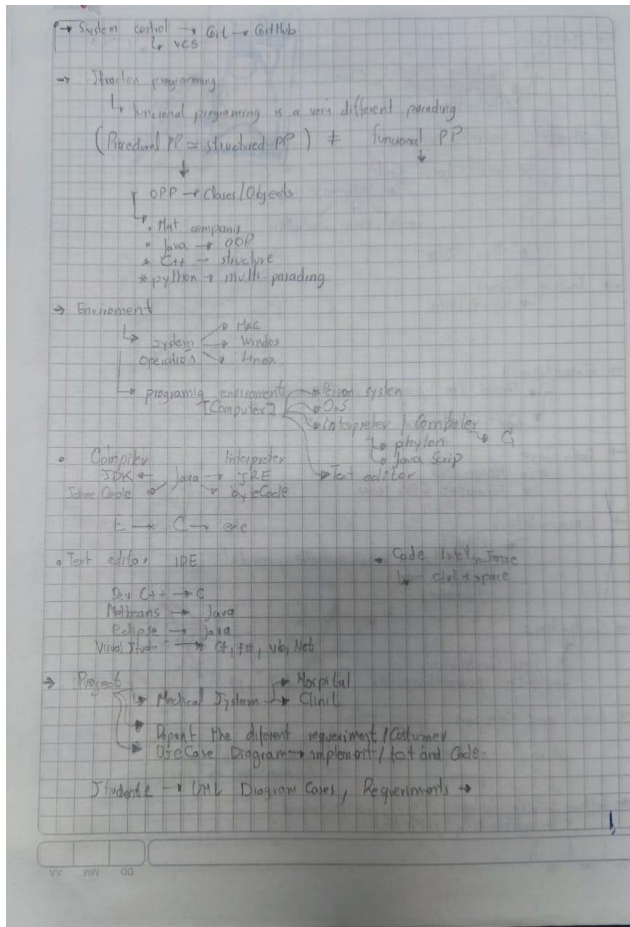 → System control → Git → GitHub
↳ VCS
→ programming
↳ funcional programing is a very different parading
(Procedural PP ≃ structured PP) ≠ funcional PP
↓ ↓
OPP → Clases/Objects
↳ • Mat companis
* Java → OOP
* C++ → structure
* python → multi parading
→ Enviroment
↳ System → Mac
→ Windos
Operation → Linox
↳ programig enviroment → system
[Computer] → O.S
→ Interpreter / Compiler → C
↳ phyton
↳ Java Scrip
→ Text editor
• Compiler Interpreter
JDK ← Java → JRE
Code → byteCode
→ C → exe
• Text editor IDE • Code
↳ ctrl + space
Dev C++ → C
Netbeans → Java
Eclipse → Java
Visual Studio → C#, F#, vb, Net
→ Proyect
↳ Medical System → Hospital
→ Clinic
→ the diferent requeriment / Costumer
→ UseCase Diagram → implement / test and Code.
→ UML Diagram Cases, Requeriments →
AA MM DD